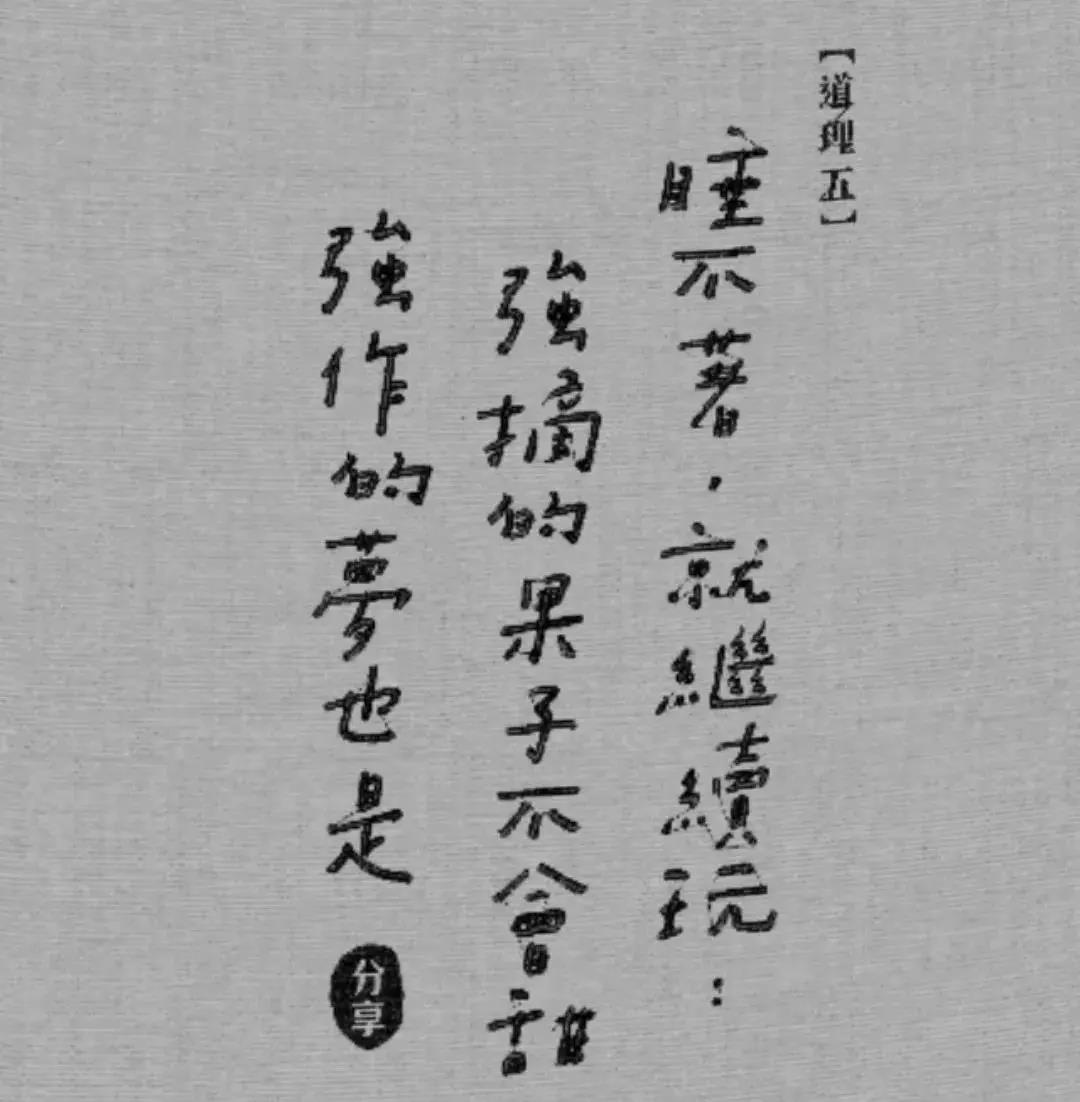 【道理五】
睡不著，就繼續玩：
強摘的果子不會甜
強作的夢也是
分享